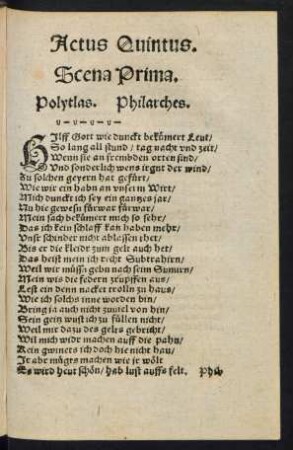 Actus Quintus.
Scena Prima.
Polytlas. Philarches.
HIlff Gott wie dunckt bekümert Leut/
So lang all stund / tag nacht vnd zeit/
Wenn sie an frembden orten sind/
Vnd sonderlich wens irgnt der wind/
Zu solchen geyern hat gefürt/
Wie wir ein hahn an vnserm Wirt/
Mich dunckt ich sey ein gantzes jar/
Nu hie gewesn fürwar fürwar/
Mein sach bekümert mich so sehr/
Das ich kein schlaff kan haben mehr/
Vnsr schinder nicht ablassen thet/
Bis er die kleider zum gelt auch het/
Das heist mein ich recht Subtrahirn/
Weil wir müssn gebn nach seim
Mein wis die federn zrupffen aus/
Lest ein denn nacket trolln zu haus/
Wie ich solchs inne worden bin/
Bring ja auch nicht zuuiel von hin/
Sein geitz wust ich zu füllen nicht/
Weil mir dazu des gelts gebricht/
Wil mich widr machen auff die pahn/
Kein gwinets ich doch hie nicht hau/
Ir abr mügts machen wie jr wölt
Es wird heut schön / hab lust auffs felt. Phil.